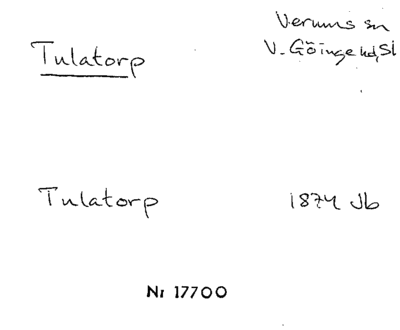 Tulatorp
Verums sn
V. Göinge hd, Sk
Tulatorp
1874 Jb
Nr 17700